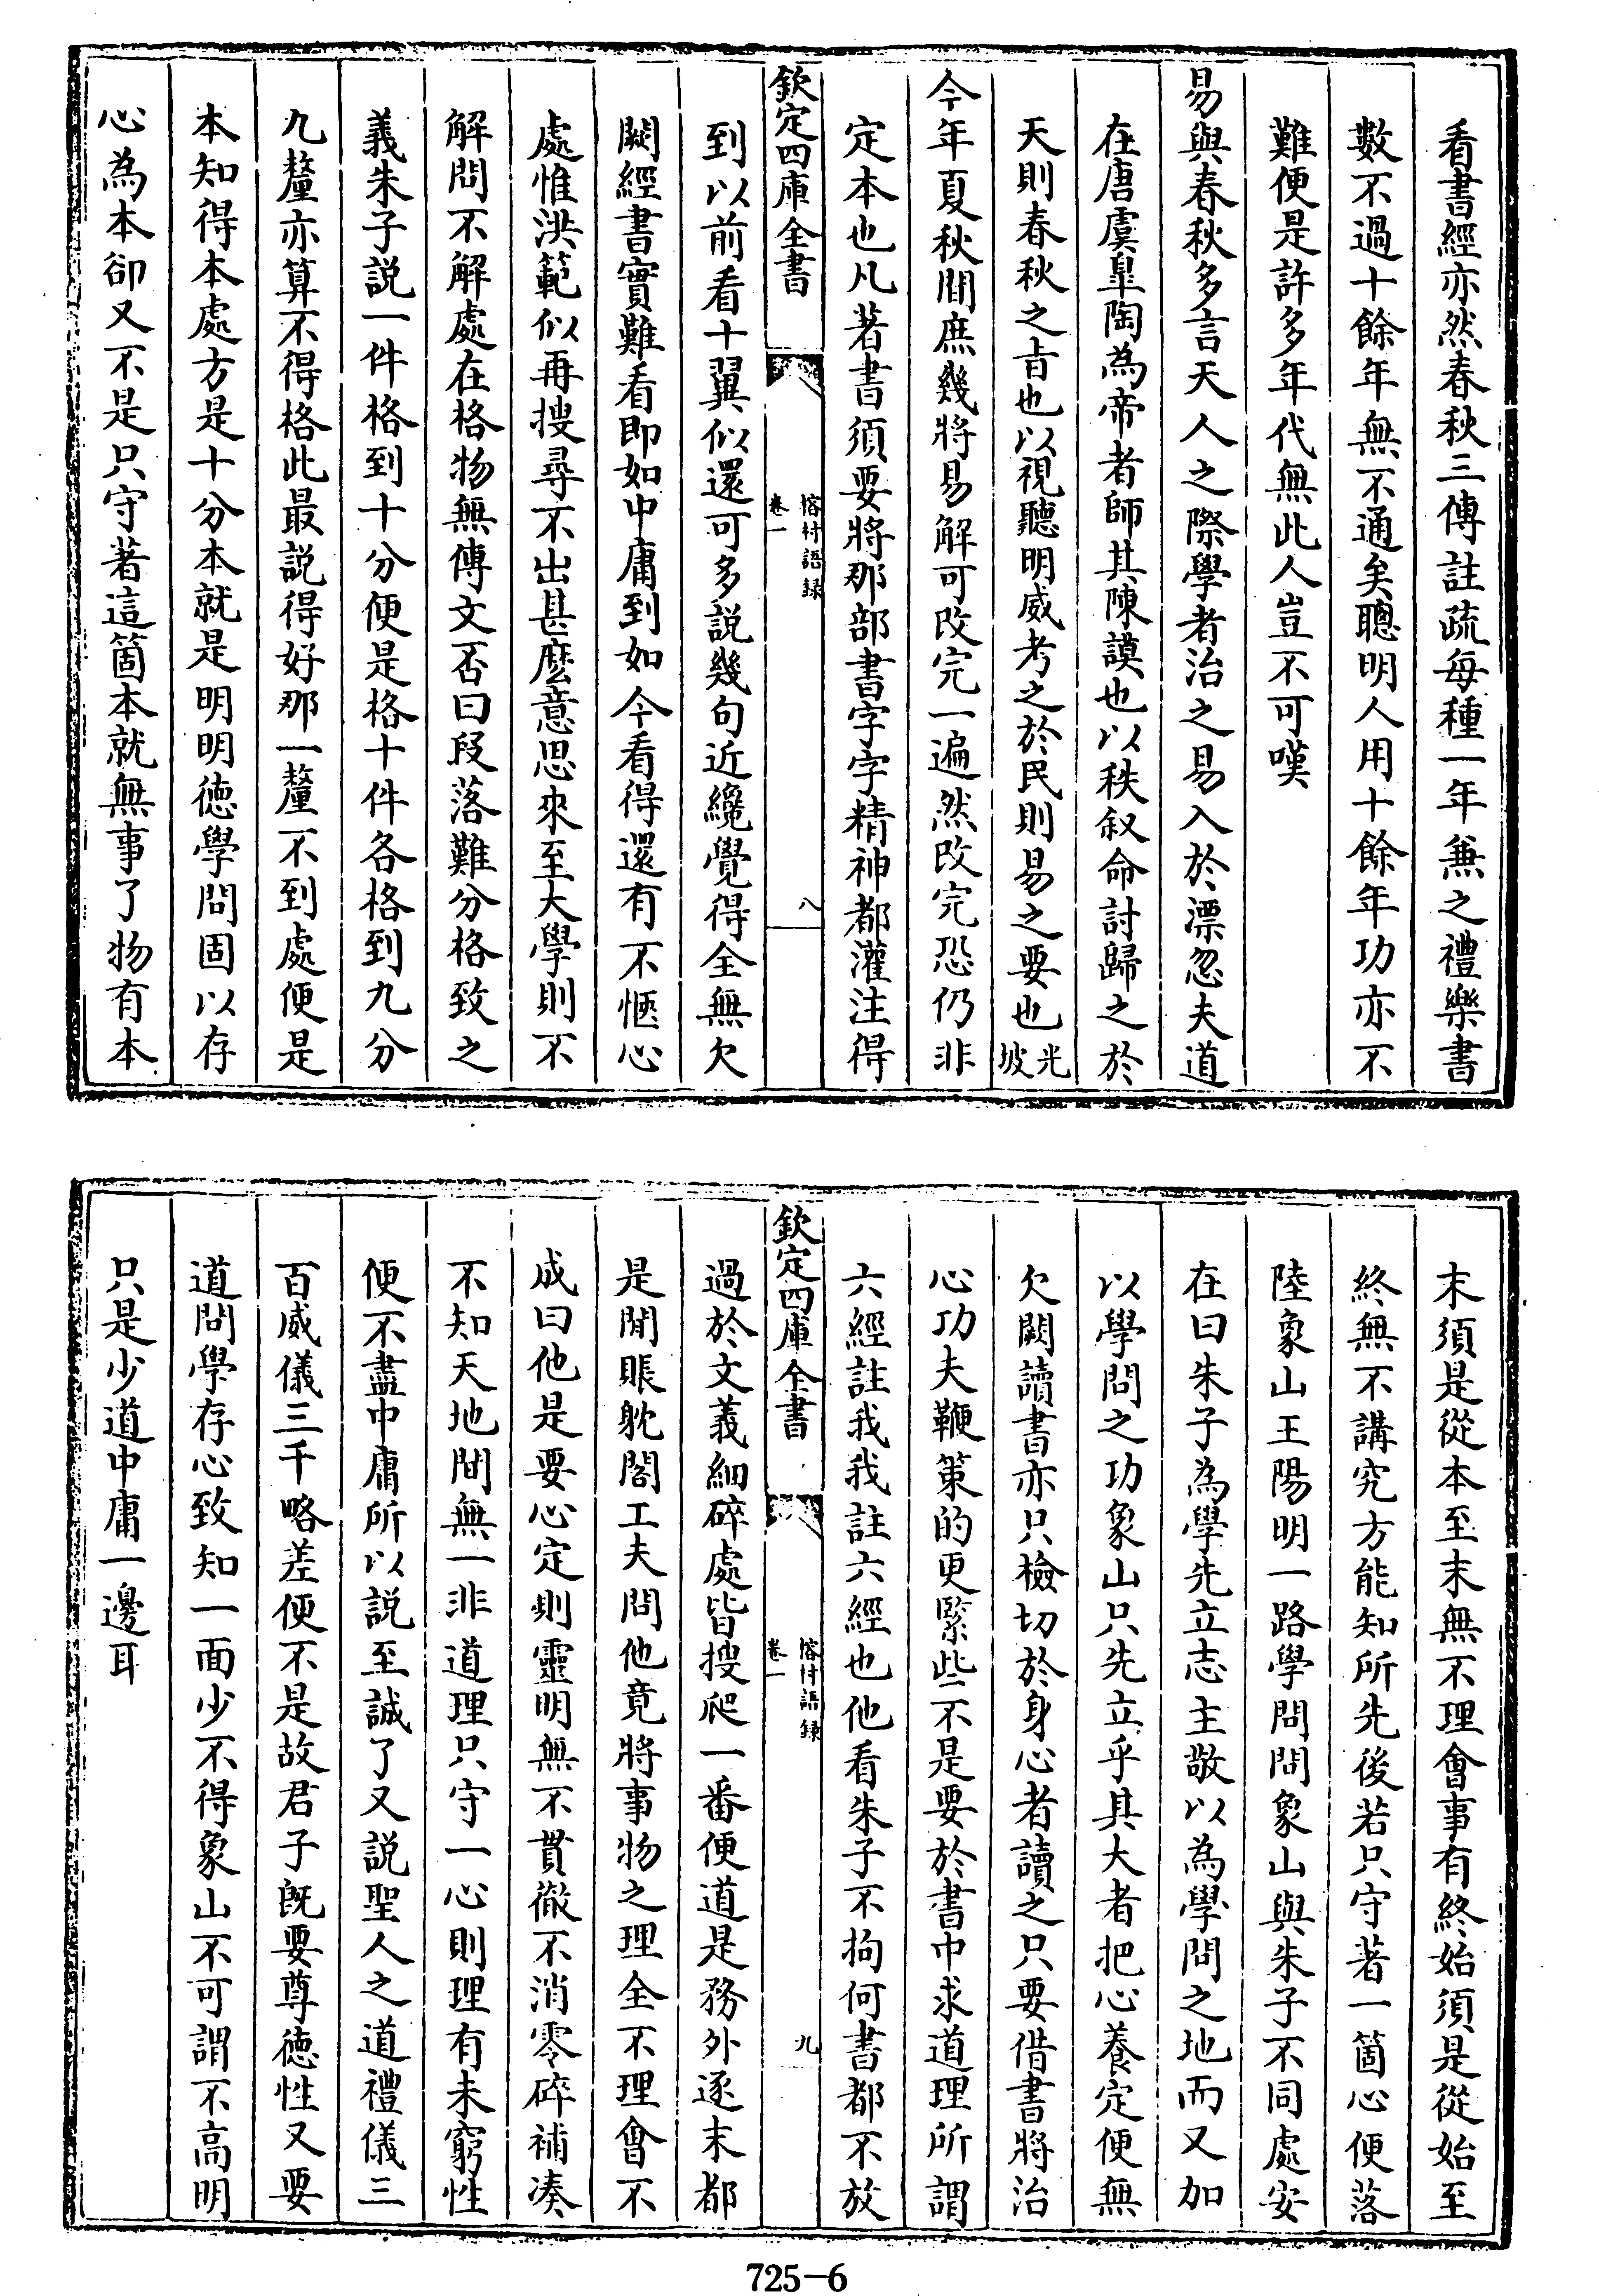 看書經亦然春秋三傳註疏每種一年兼之禮樂書
數不過十餘年無不通矣聰明人用十餘年功亦不
難便是許多年代無此人豈不可嘆
易與春秋多言天人之際學者治之易入於漂忽夫道
在唐虞臯陶為帝者師其陳謨也以秩叙命討歸之於
天則春秋之㫖也以視聽明威考之於民則易之要也光坡
今年夏秋間庶幾將易解可改完一遍然改完恐仍非
定本也凡著書須要將那部書字字精神都灌注得
欽定四庫全書
榕村語録
卷一
八
到以前看十翼似還可多説幾句近纔覺得全無欠
闕經書實難看即如中庸到如今看得還有不愜心
處惟洪範似再搜尋不出甚麽意思來至大學則不
解問不解處在格物無傳文否曰段落難分格致之
義朱子説一件格到十分便是格十件各格到九分
九釐亦算不得格此最説得好那一釐不到處便是
本知得本處方是十分本就是明明徳學問固以存
心為本卻又不是只守著這箇本就無事了物有本
末須是從本至末無不理會事有終始須是從始至
終無不講究方能知所先後若只守著一箇心便落
陸象山王陽明一路學問問象山與朱子不同處安
在曰朱子為學先立志主敬以為學問之地而又加
以學問之功象山只先立乎其大者把心養定便無
欠闕讀書亦只檢切於身心者讀之只要借書將治
心功夫鞭策的更緊些不是要於書中求道理所謂
六經註我我註六經也他看朱子不拘何書都不放
欽定四庫全書
榕村語録
卷一
九
過於文義細碎處皆搜爬一番便道是務外逐末都
是閒賬躭閣工夫問他竟將事物之理全不理會不
成曰他是要心定則靈明無不貫徹不消零碎補湊
不知天地間無一非道理只守一心則理有未窮性
便不盡中庸所以説至誠了又説聖人之道禮儀三
百威儀三千略差便不是故君子既要尊徳性又要
道問學存心致知一面少不得象山不可謂不高明
只是少道中庸一邊耳
725-6